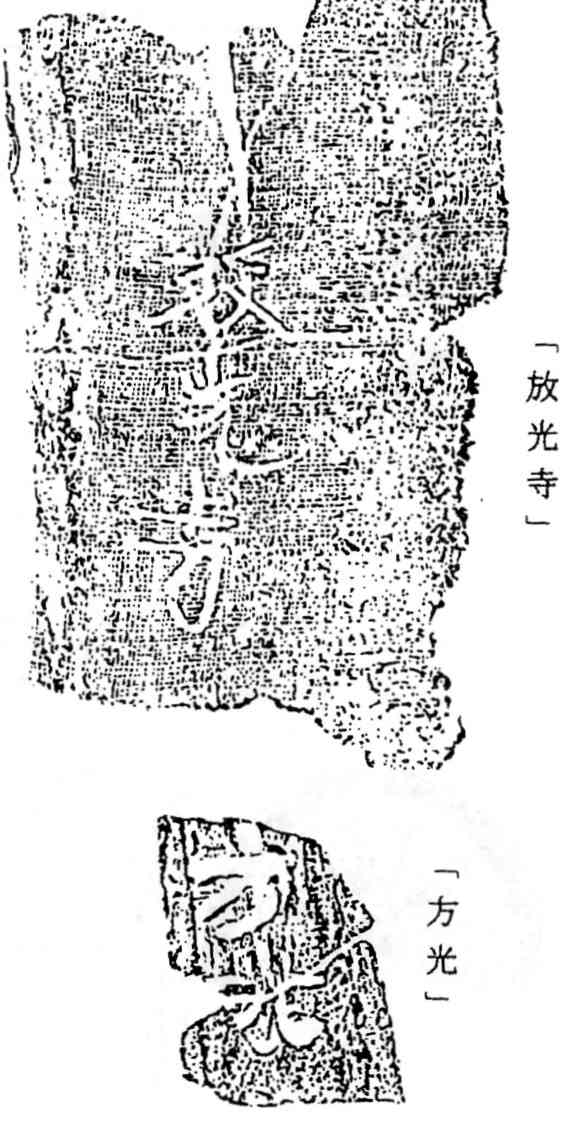 「放光寺」
放光寺
「方光」
方光